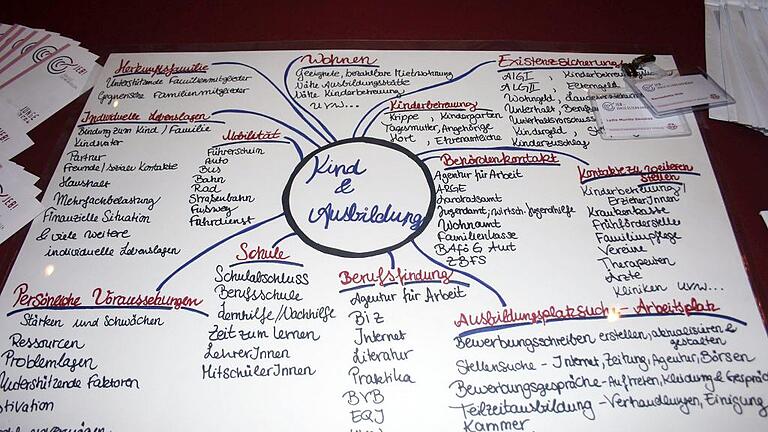 Kind
&
Ausbildung
Herkunftsfamilie
Unterstützende Familienmitglieder
Gegnerische Familienmitglieder
Wohnen
Geeignete, bezahlbare Mietwohnung
Nähe Ausbildungsstätte
Nähe Kinderbetreuung
usw...
Existenzsicherung
ALG I, Kinderbetreu
ALG II, Elterngeld
Wohngeld, Landeserzie
Unterhalt, Berufsa
Unterhaltsvorschuss
Kindergeld, St
Kinderzuschlag
Kinderbetreuung
Krippe, Kindergarten
Tagesmutter, Angehörige
Hort, Ehrenamtliche
Individuelle Lebenslagen
Bindung zum Kind / Familie
Kindsvater
Partner
Freunde/soziale Kontakte
Haushalt
Mehrfachbelastung
Finanzielle Situation
& viele weitere
individuelle Lebenslagen
Mobilität
Führerschein
Auto
Bus
Bahn
Rad
Straßenbahn
Fußweg
Fahrdienst
Behördenkontakt
Agentur für Arbeit
ARGE
Landratsamt
Jugendamt, wirtsch. Jugendhilfe
Wohnamt
Familienkasse
BAföG Amt
ZBFS
Kontakte zu weiteren
Stellen
Kinderbetreuung/
ErzieherInnen
Krankenkasse
Frühförderstelle
Familienpflege
Verein
Therapeuten
Ärzte
Kliniken usw...
Persönliche Voraussetzungen
Stärken und Schwächen
Ressourcen
Problemlagen
Unterstützende Faktoren
otivation
Schule
Schulabschluss
Berufsschule
Lernhilfe/Nachhilfe
Zeit zum Lernen
LehrerInnen
MitschülerInnen
Berufsfindung
Agentur für Arbeit
BiZ
Internet
Literatur
Praktika
BVB
EQJ
Ausbildungsplatzsuche - Arbeitsplatz
Bewerbungsschreiben erstellen, aktualisieren &
gestalten
Stellensuche - Internet, Zeitung, Agentur, Börsen
Bewerbungsgespräche - Auftreten, Kleidung & Gespräch
Teilzeitausbildung - Verhandlungen, Einigung
Kammer